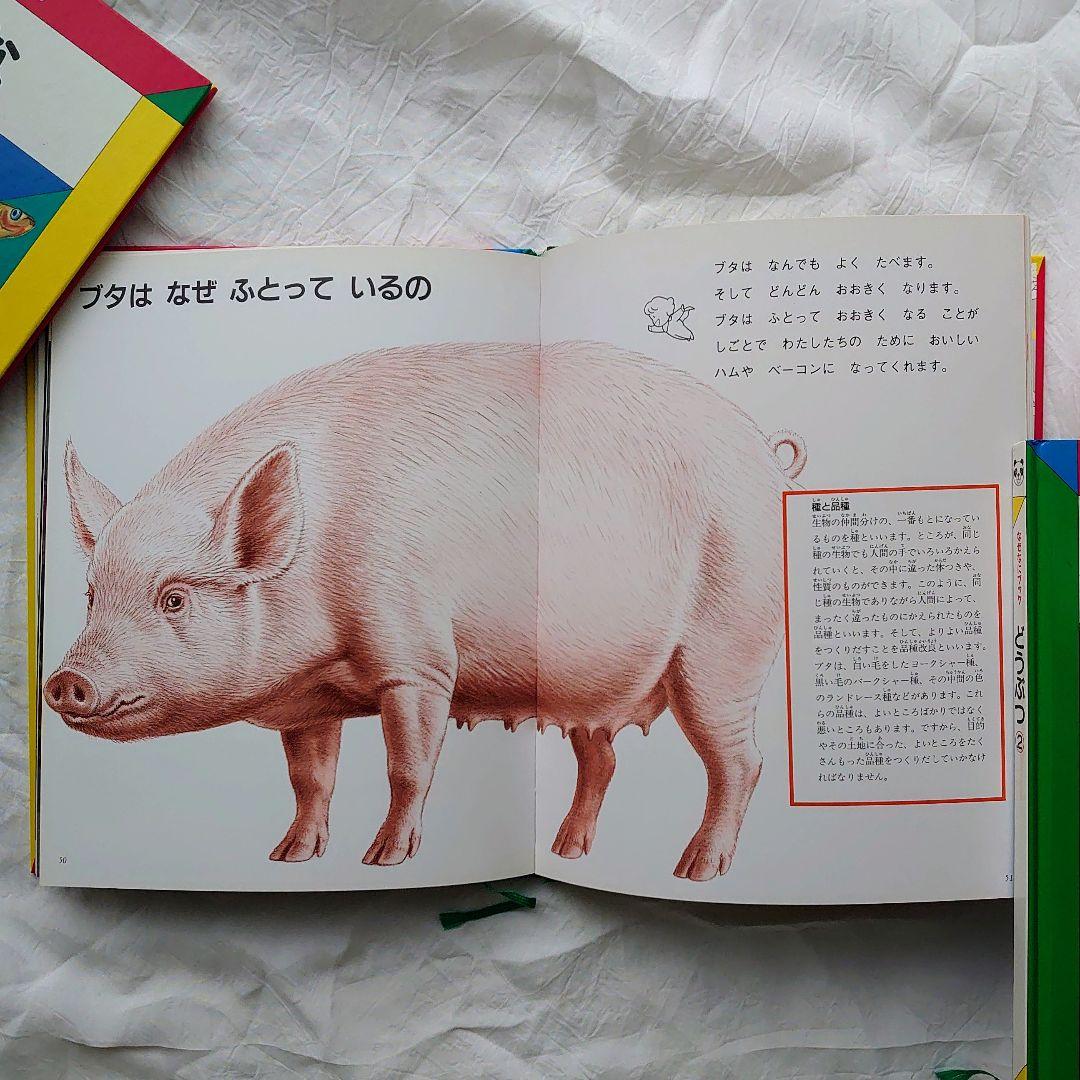 ブタは なぜ ふとって いるの
ブタは なんでも よく たべます。
そして どんどん おおきく なります。
ブタは ふとって おおきく なる ことが
しごとで わたしたちの ために おいしい
ハムや ベーコンに なってくれます。
種と品種
生物の仲間分けの、一番もとになってい
るものを種といいます。ところが、同じ
種の生物でも人間の手でいろいろかえら
れていくと、その中に違った体つきや、
性質のものができます。このように、同
じ種の生物でありながら人間によって、
まったく違ったものにかえられたものを
品種といいます。そして、よりよい品種
をつくりだすことを品種改良といいます。
ブタは、白い毛をしたヨークシャー種、
黒い毛のバークシャー種、その中間の色
のランドレース種などがあります。これ
らの品種は、よいところばかりではなく
悪いところもあります。ですから、目的
やその土地に合った、よいところをたく
さんもった品種をつくりだしていかなけ
ればなりません。
50
51
どうぶつ②